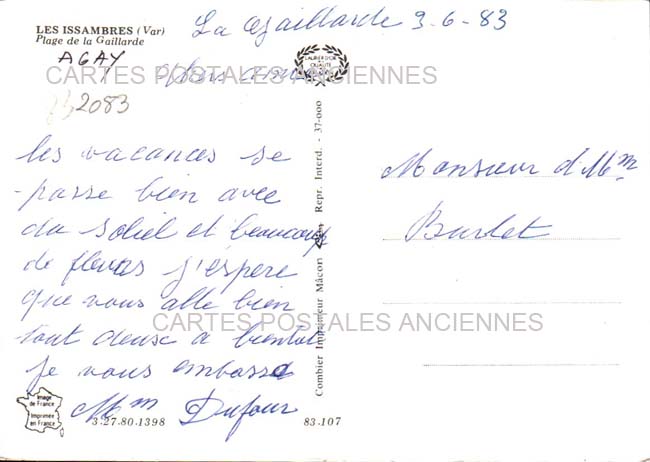 LES ISSAMBRES (Var)
Plage de la Gaillarde
La Gaillarde 3-6-83
AGAY
CARTES POSTALES ANCIENNES
2083
LAURIER D'OR
DE
QUALITÉ
les vacances se
passe bien avec
du soliel et beaucoup
de fleurs j'espere
que vous alle bien
tout deux a bientot
je vous embasse
Mme Dufour
Monsieur et Mme
Burlet
CARTES POSTALES ANCIENNES
Combier Imprimeur Mâcon
Repr. Interd. - 37-000
Image
de France
Imprimée
en France
3.27.80.1398
83.107